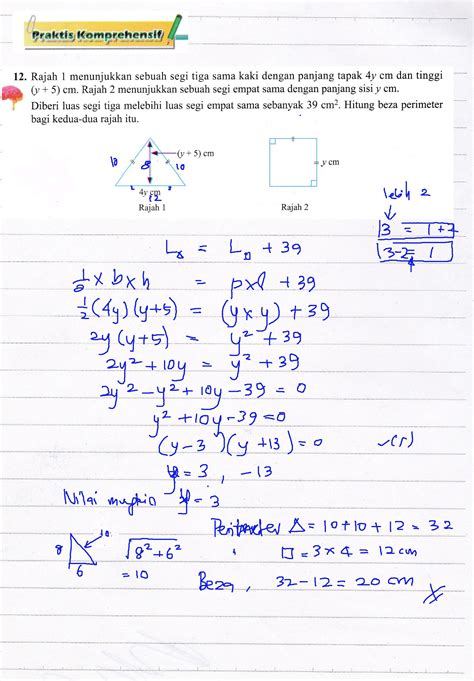 Praktis Komprehensif
12. Rajah 1 menunjukkan sebuah segi tiga sama kaki dengan panjang tapak 4y cm dan tinggi
(y + 5) cm. Rajah 2 menunjukkan sebuah segi empat sama dengan panjang sisi y cm.
Diberi luas segi tiga melebihi luas segi empat sama sebanyak 39 cm². Hitung beza perimeter
bagi kedua-dua rajah itu.
(y + 5) cm
10 8 10
y cm
4y cm
12
Rajah 1
Rajah 2
lebih 2
3 = 1+2
3-2 = 1
L△ = L□ + 39
½ × b × h = p×l + 39
½(4y)(y+5) = (y×y) + 39
2y(y+5) = y² + 39
2y² + 10y = y² + 39
2y² - y² + 10y - 39 = 0
y² + 10y - 39 = 0
(y - 3)(y + 13) = 0
y = 3, -13
Nilai mungkin y = 3
Perimeter △ = 10 + 10 + 12 = 32
□ = 3 × 4 = 12 cm
8 10 6
√8² + 6²
= 10
Beza, 32 - 12 = 20 cm